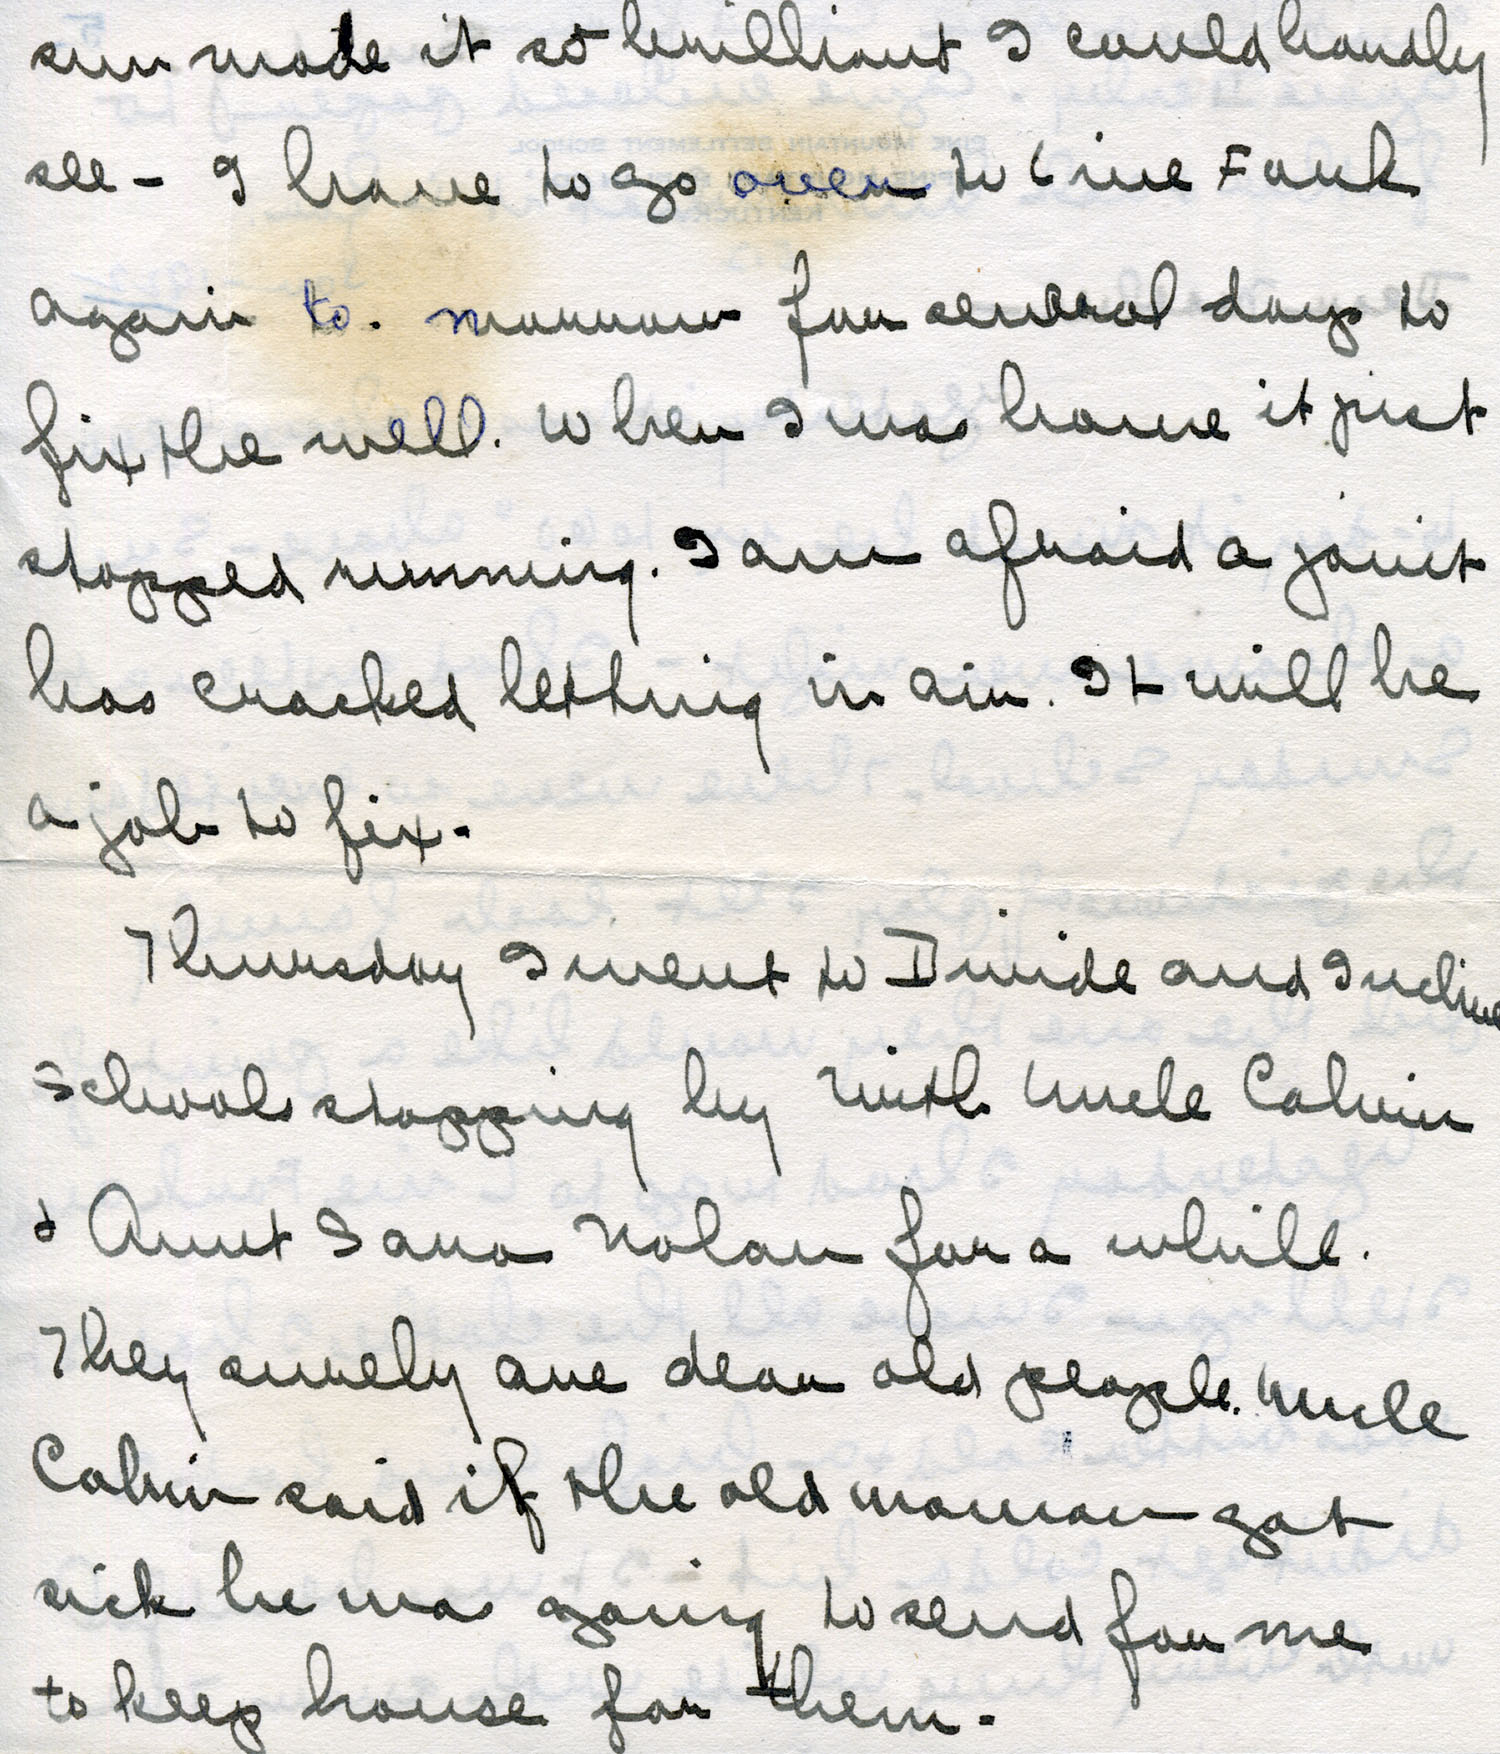 sun made it so brilliant I could hardly
see - I have to go over to Line Fork
again to. morrow for several days to
fix the well. When I was home it just
stopped running. I am afraid a joint
has cracked letting in air. It will be
a job to fix.
Thursday I went to Divide and Incline
Schools stopping by with Uncle Calvin
& Aunt Sara Nolan for a while.
They surely are dear old people. Uncle
Calvin said if the old woman got
sick he was going to send for me
to keep house for them.